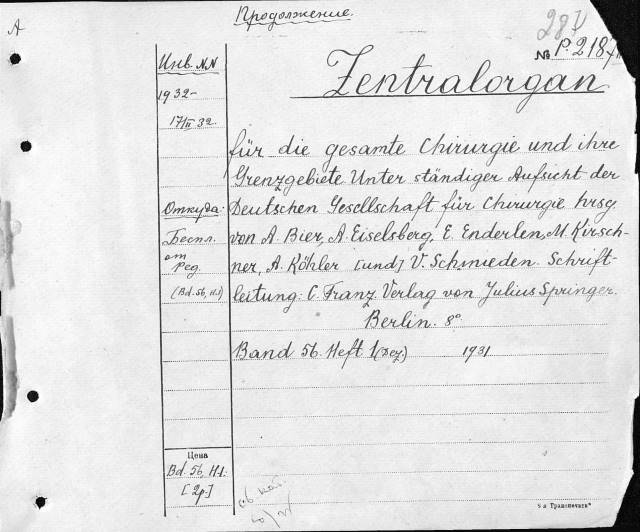 Продолжение.
А
287
№ Р.218
Инв. NN
Zentralorgan
1932-
17/II 32.
für die gesamte Chirurgie und ihre
Grenzgebiete. Unter ständiger Aufsicht der
Откуда:
Deutschen Gesellschaft für Chirurgie hrsg
Беспл.
von A. Bier, A. Eiselsberg, E. Enderlen, M. Kirsch-
от
Ред.
ner, A. Köhler [und] V. Schmieden. Schrift-
(Bd. 56, H.1)
leitung: C. Franz. Verlag von Julius Springer.
Berlin. 8°
Band 56. Heft 1 (Dez.) 1931
Цена
Bd. 56, H.1:
[2р.]